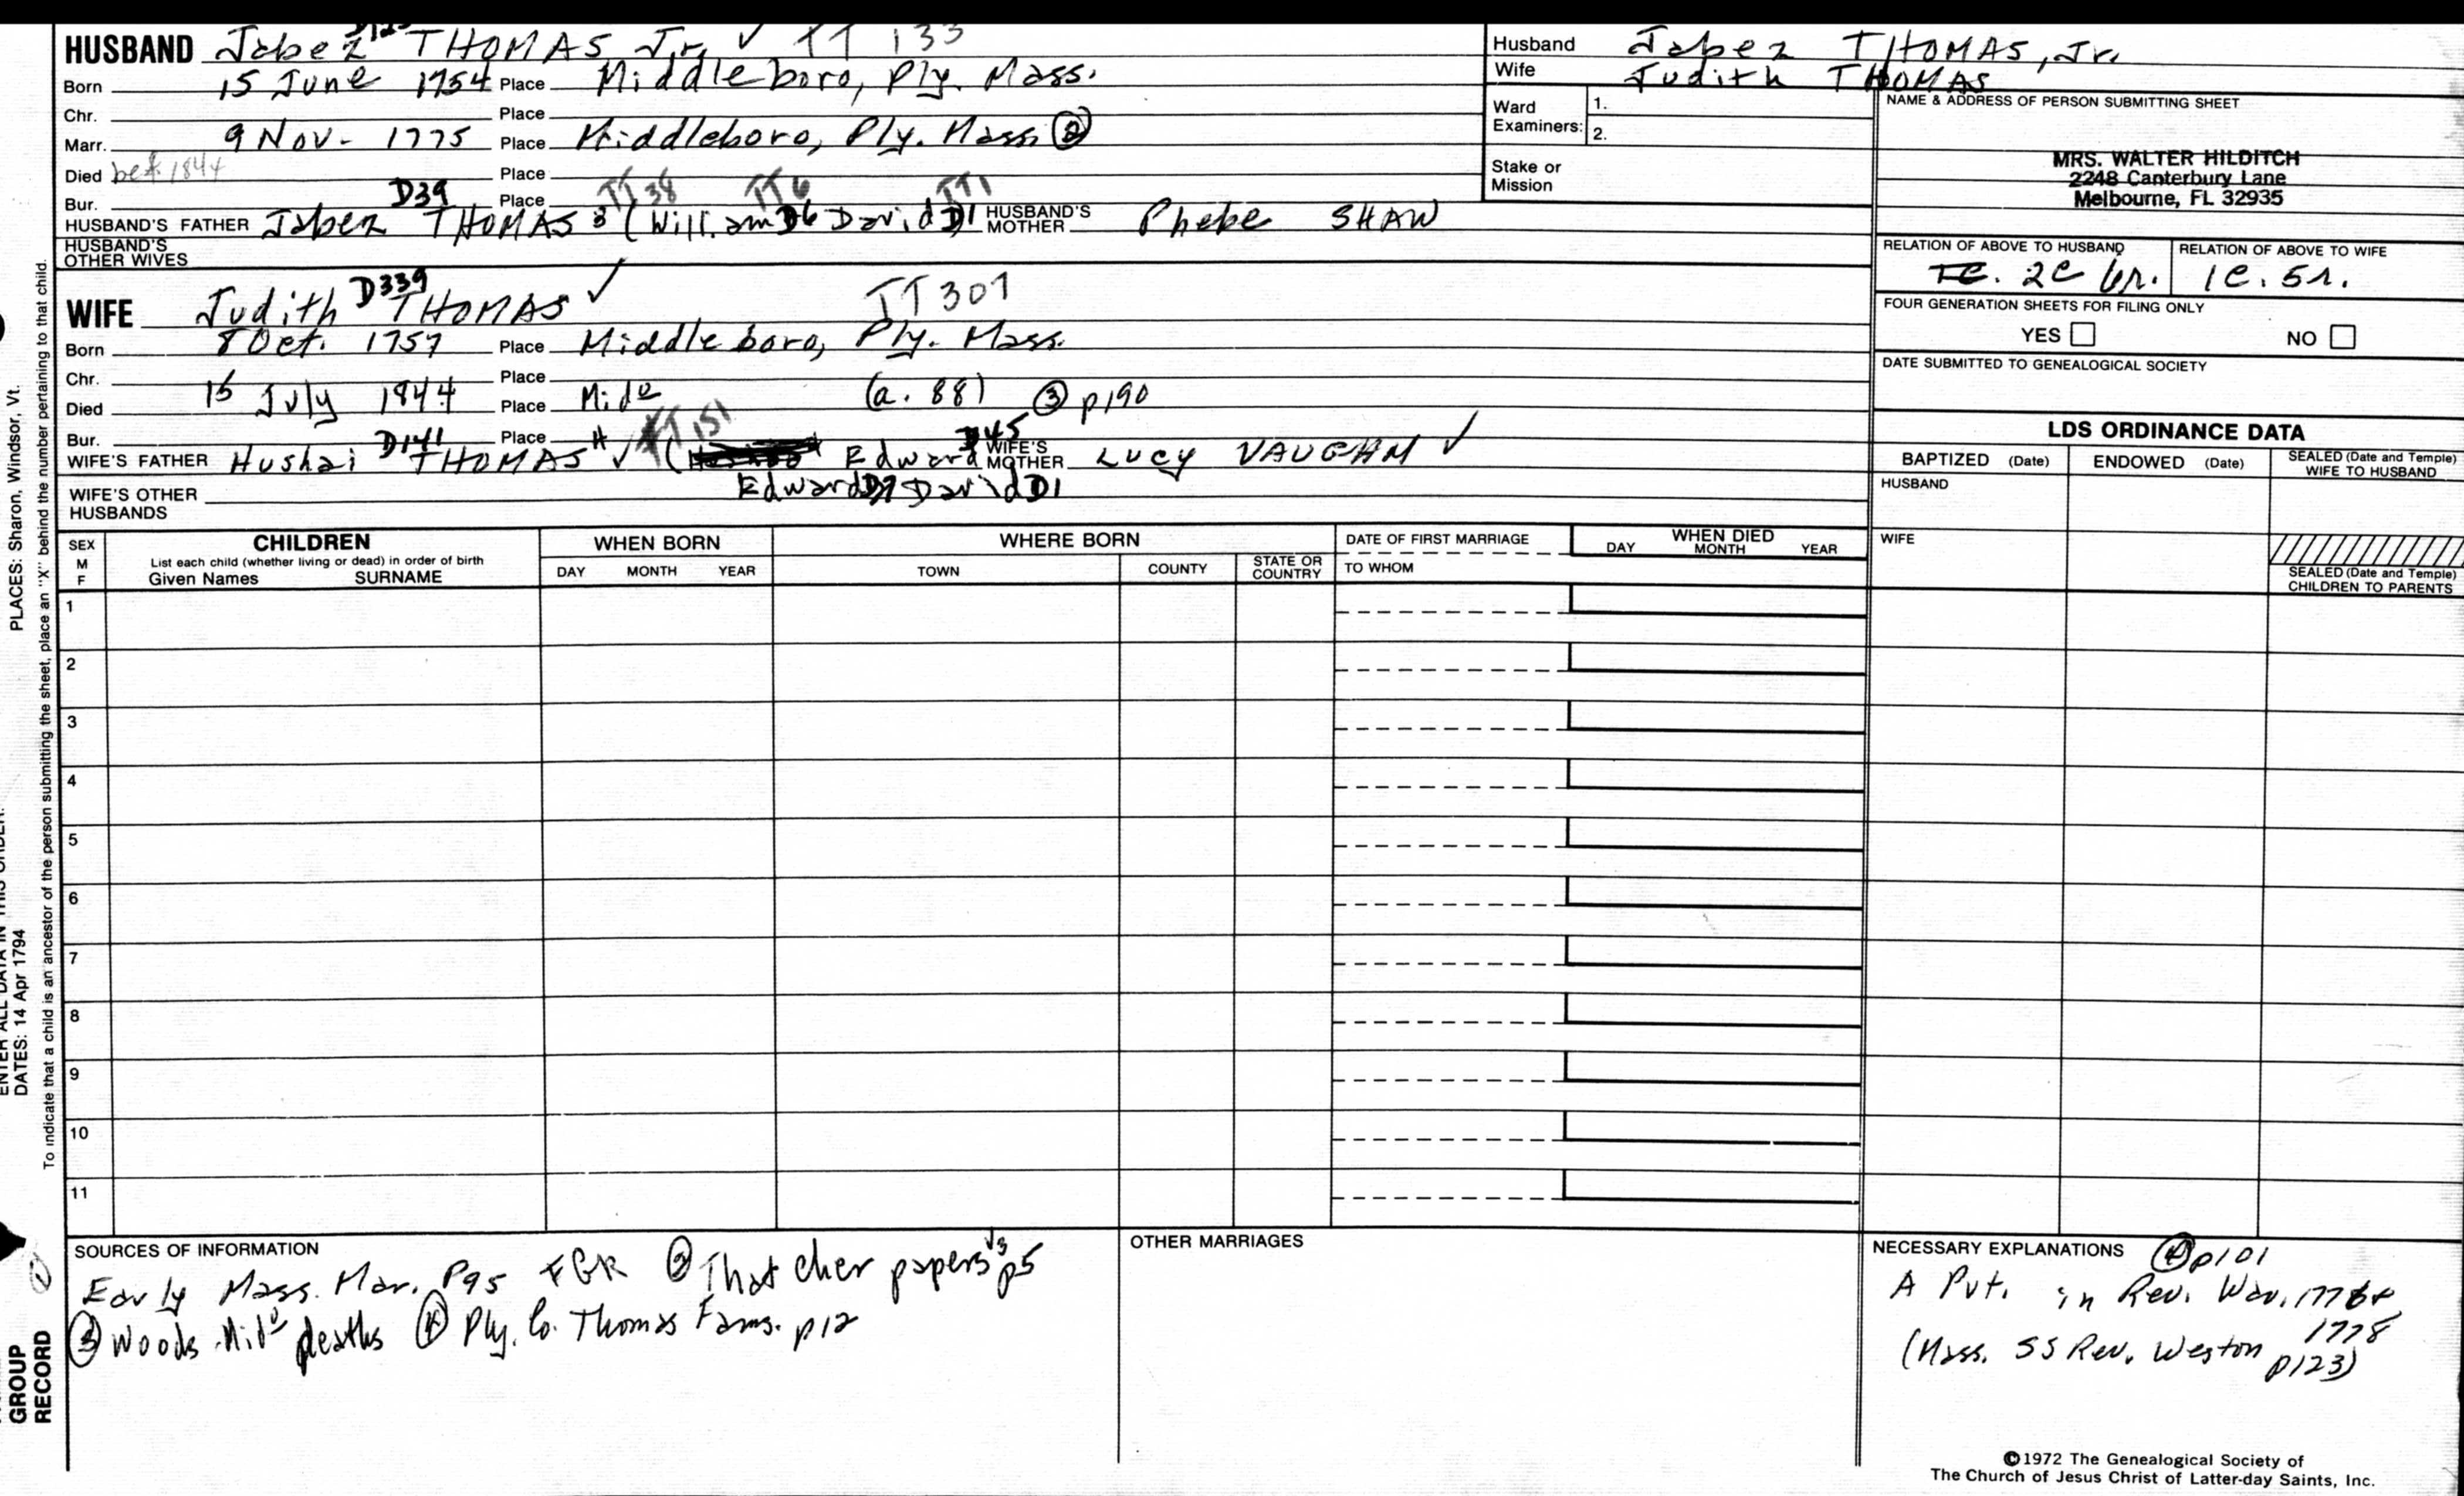 HUSBAND Jabez THOMAS Jr. ✓ TT 133
Born 15 June 1754 Place Middleboro, Ply. Mass.
Chr. Place
Marr. 9 Nov- 1775 Place Middleboro, Ply. Mass ②
Died bef. 1844 Place
Bur. D39 Place TT 38 TT 6 TT 1
HUSBAND'S FATHER Jabez THOMAS (William D6 David D1 HUSBAND'S MOTHER Phebe SHAW
HUSBAND'S OTHER WIVES
WIFE Judith D339 THOMAS ✓ TT 301
Born 8 Oct. 1757 Place Middleboro, Ply. Mass.
Chr. Place
Died 15 July 1844 Place Mido (a. 88) ③ p190
Bur. D141 Place TT 151 D45
WIFE'S FATHER Hushai THOMAS ✓ ( Edward WIFE'S MOTHER Lucy VAUGHN ✓
Edward D7 David D1
WIFE'S OTHER HUSBANDS
Husband Jabez THOMAS, Jr.
Wife Judith THOMAS
Ward Examiners: 1.
2.
Stake or Mission
NAME & ADDRESS OF PERSON SUBMITTING SHEET
MRS. WALTER HILDITCH
2248 Canterbury Lane
Melbourne, FL 32935
RELATION OF ABOVE TO HUSBAND RELATION OF ABOVE TO WIFE
2c 6r. 1c. 5r.
FOUR GENERATION SHEETS FOR FILING ONLY
YES NO
DATE SUBMITTED TO GENEALOGICAL SOCIETY
LDS ORDINANCE DATA
BAPTIZED (Date) ENDOWED (Date) SEALED (Date and Temple) WIFE TO HUSBAND
HUSBAND
WIFE
SEALED (Date and Temple) CHILDREN TO PARENTS
SEX M F
CHILDREN
List each child (whether living or dead) in order of birth
Given Names SURNAME
WHEN BORN
DAY MONTH YEAR
WHERE BORN
TOWN COUNTY STATE OR COUNTRY
DATE OF FIRST MARRIAGE
TO WHOM
WHEN DIED
DAY MONTH YEAR
1
2
3
4
5
6
7
8
9
10
11
SOURCES OF INFORMATION
Early Mass. Mar. P95 FGR ② Thatcher papers V3 p5
③ Woods Mido deaths ④ Ply. Co. Thomas Fams. p12
OTHER MARRIAGES
NECESSARY EXPLANATIONS ④ p101
A Pvt. in Rev. War. 1776+
1778
(Mass. SS Rev. Weston p123)
©1972 The Genealogical Society of
The Church of Jesus Christ of Latter-day Saints, Inc.
PLACES: Sharon, Windsor, Vt.
DATES: 14 Apr 1794
To indicate that a child is an ancestor of the person submitting the sheet, place an "X" behind the number pertaining to that child.
GROUP
RECORD